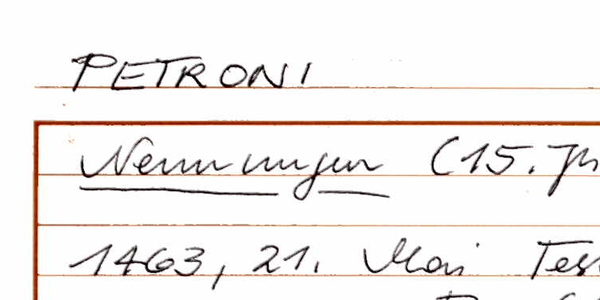 PETRONI
Nennungen (15. Jh
1463, 21. Mai Tes